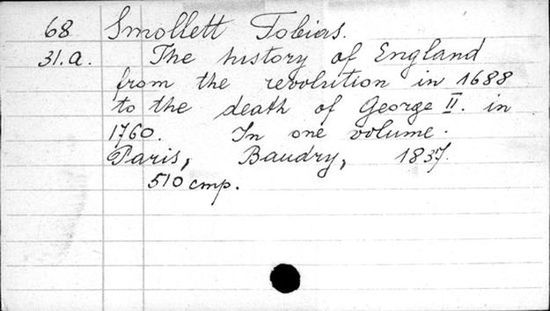 68 Smollett Tobias.
31.a. The history of England
from the revolution in 1688
to the death of George II. in
1760. In one volume.
Paris, Baudry, 1837.
510 стр.